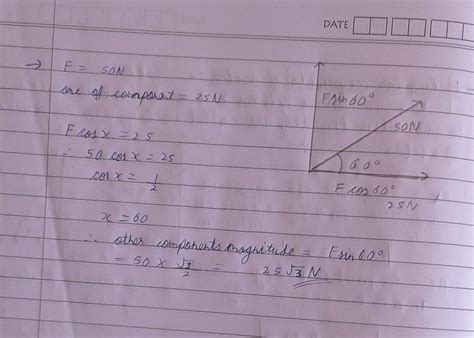 DATE
→ F = 50N
one of componat = 25N
F cos x = 25
∴ 50 cos x = 25
cos x = 1/2
x = 60
∴ other components magnitude = F sin 60°
= 50 × √3/2 = 25√3 N
F sin 60°
50N
60°
F cos 60°
25N